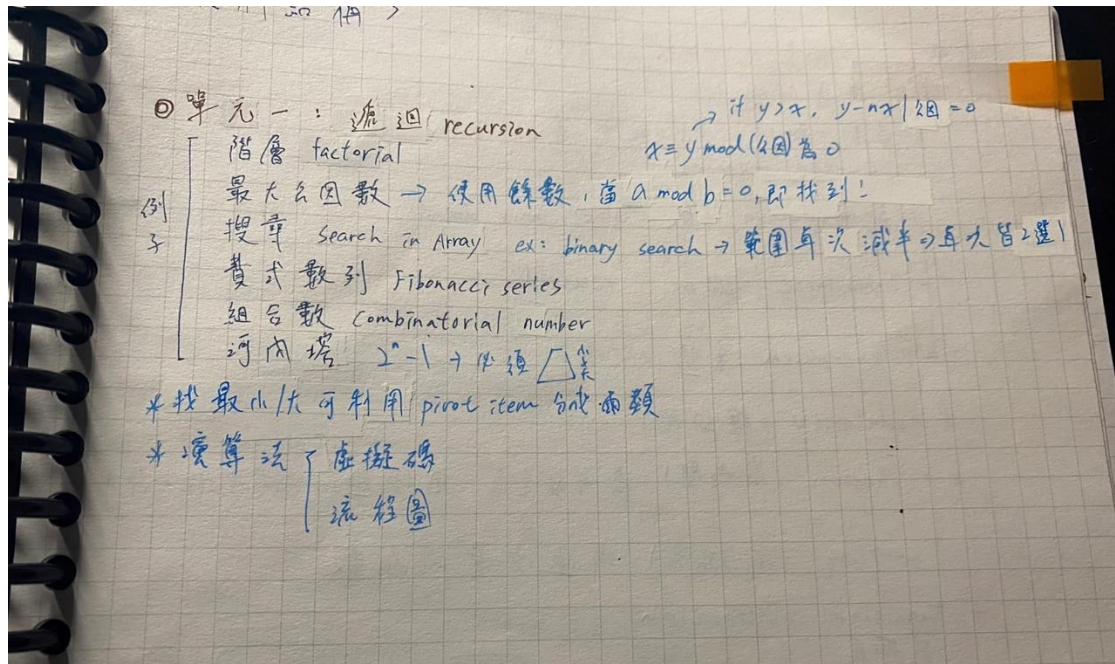 ◎ 單元一：遞迴 recursion
→ if y>x, y-nx|公因=0
x≡y mod(公因)為0
例子
階層 factorial
最大公因數 → 使用餘數，當 a mod b=0, 即找到！
搜尋 search in Array ex: binary search → 範圍每次減半⇒每次皆2選1
費式數列 Fibonacci series
組合數 combinatorial number
河內塔 2ⁿ-1 → 必須
*找最小/大可利用 pivot item 分成兩類
*演算法
虛擬碼
流程圖